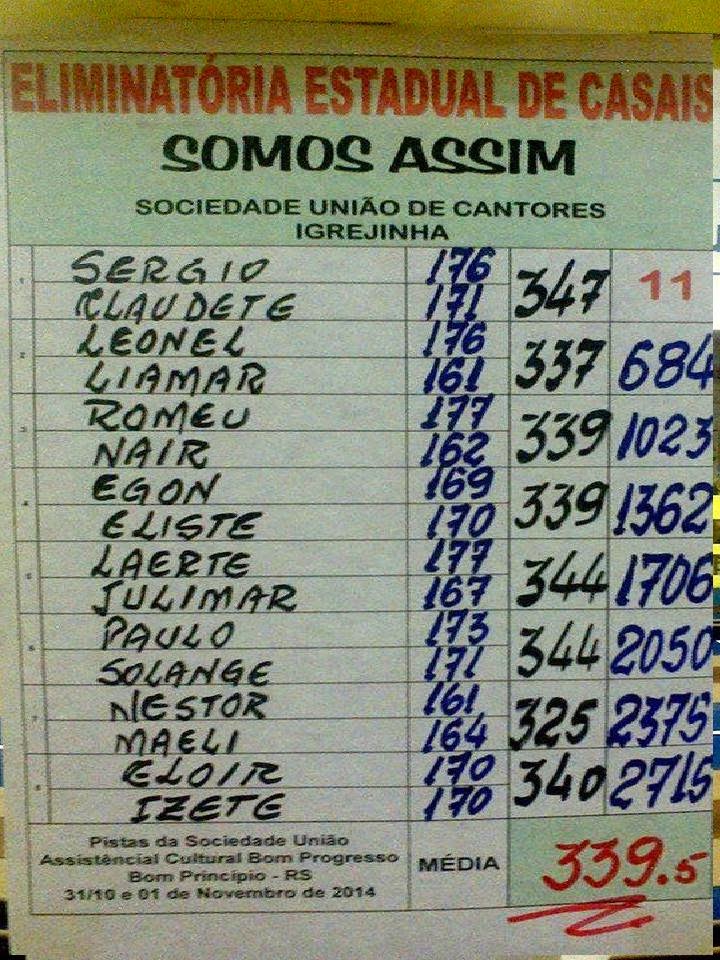 ELIMINATÓRIA ESTADUAL DE CASAIS
SOMOS ASSIM
SOCIEDADE UNIÃO DE CANTORES
IGREJINHA
1 SERGIO 176 347 11
CLAUDETE 171
2 LEONEL 176 337 684
LIAMAR 161
3 ROMEU 177 339 1023
NAIR 162
4 EGON 169 339 1362
ELISTE 170
5 LAERTE 177 344 1706
JULIMAR 167
6 PAULO 173 344 2050
SOLANGE 171
7 NESTOR 161 325 2375
MAELI 164
8 ELOIR 170 340 2715
IZETE 170
Pistas da Sociedade União
Assistêncial Cultural Bom Progresso
Bom Princípio - RS
31/10 e 01 de Novembro de 2014
MÉDIA 339.5